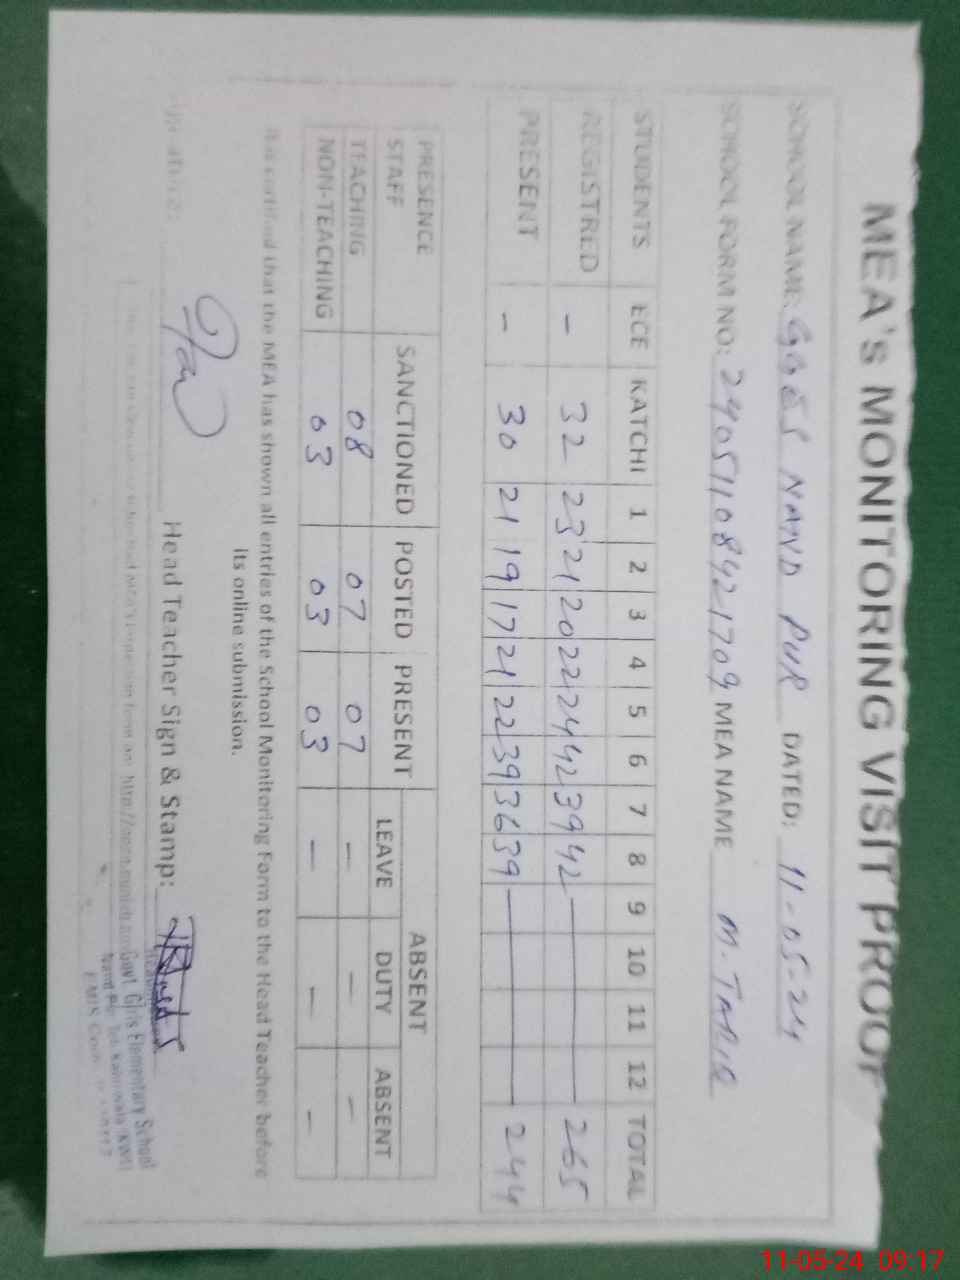 MEA's MONITORING VISIT PROOF
SCHOOL NAME: GGES NAND PUR DATED: 11-05-24
SCHOOL FORM NO: 24051108421709 MEA NAME M. TARIQ
STUDENTS ECE KATCHI 1 2 3 4 5 6 7 8 9 10 11 12 TOTAL
REGISTRED - 32 23 21 20 22 24 42 39 42 — 265
PRESENT - 30 21 19 17 21 22 39 36 39 — 244
PRESENCE SANCTIONED POSTED PRESENT ABSENT
STAFF LEAVE DUTY ABSENT
TEACHING 08 07 07 - - -
NON-TEACHING 03 03 03 - - -
It is certified that the MEA has shown all entries of the School Monitoring Form to the Head Teacher before
its online submission.
Head Teacher Sign & Stamp:
Govt. Girls Elementary School
Nand Pur
EMIS Code
inspection form on: http://
11-05-24 09:17